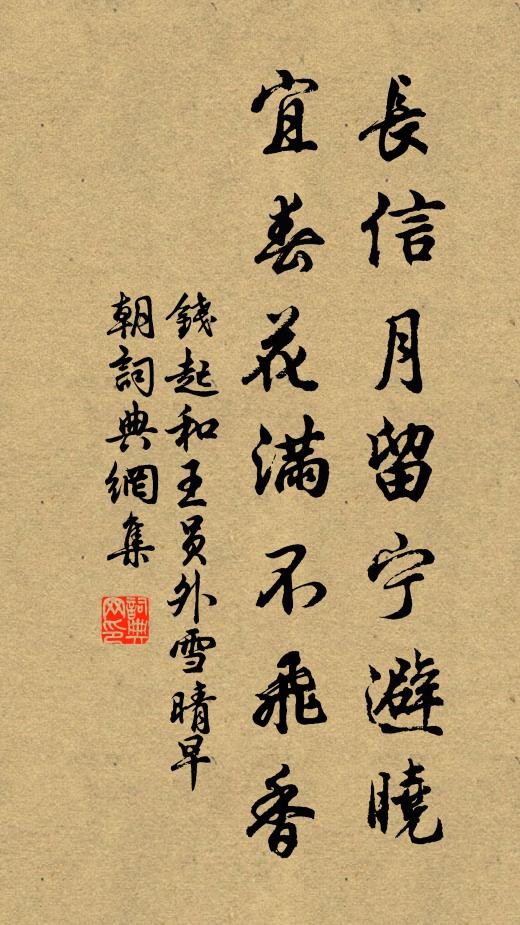 長信月留宁避曉
宜春花滿不飛香
錢起和王員外雪晴早
朝詞典網集
詞典
网印